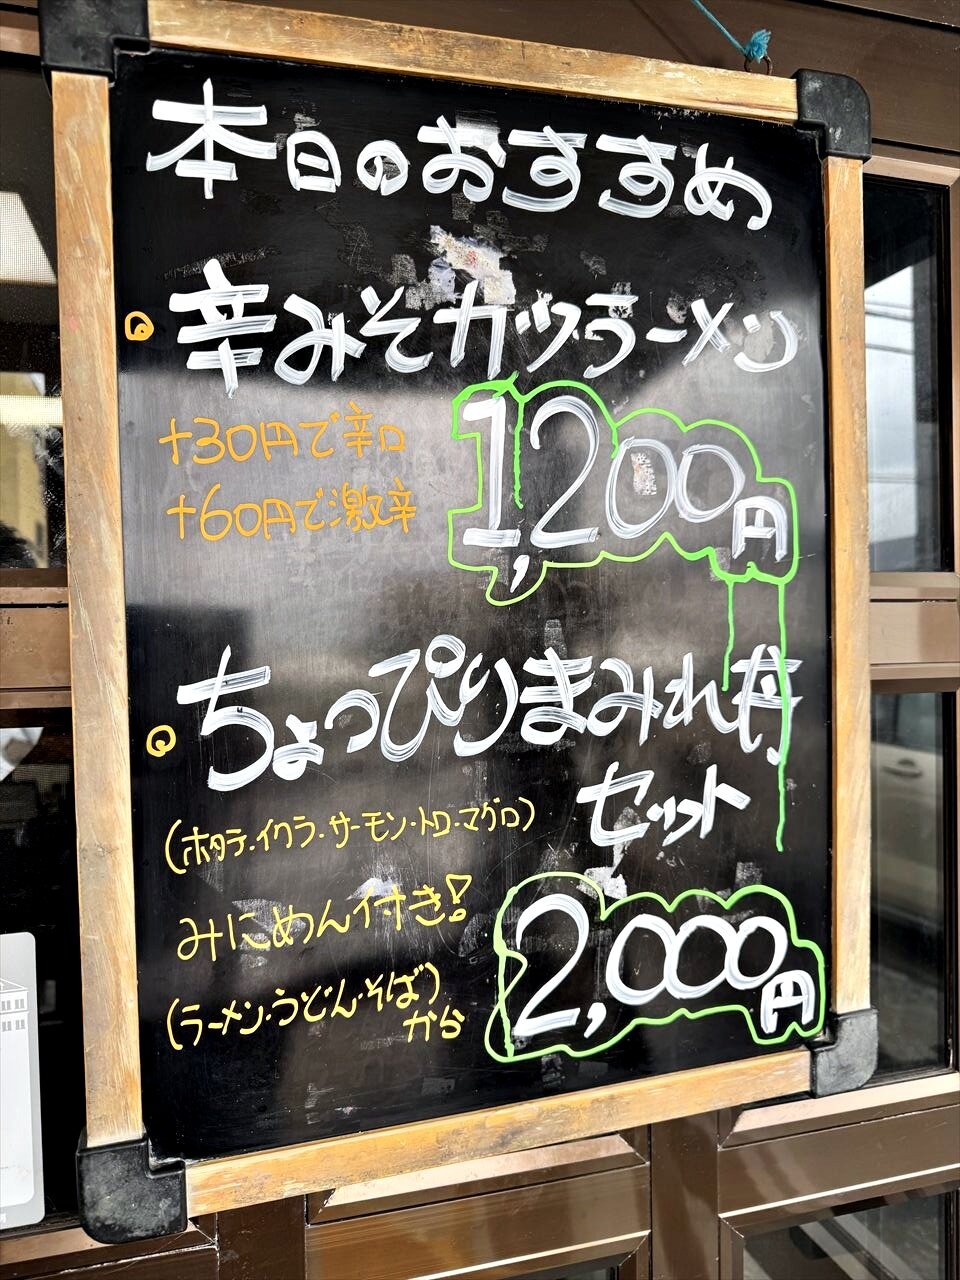 本日のおすすめ
辛みそカツラーメン
+30円で辛口
+60円で激辛
1,200円
ちょっぴりまみれ丼
セット
(ホタテ・イクラ・サーモン・トロ・マグロ)
みにめん付き!
(ラーメン・うどん・そば)
から
2,000円